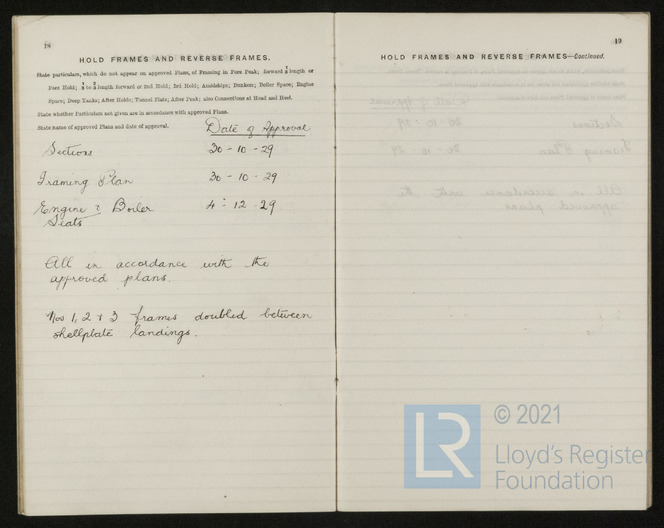 18
HOLD FRAMES AND REVERSE FRAMES.
State particulars, which do not appear on approved Plans, of Framing in Fore Peak; forward ¼ length or
Fore Hold; ¼ to ½ length forward or 2nd Hold; 3rd Hold; Amidships; Bunkers; Boiler Space; Engine
Space; Deep Tanks; After Holds; Tunnel Flats; After Peak; also Connections at Head and Heel.
State whether Particulars not given are in accordance with approved Plans.
State name of approved Plans and date of approval. Date of Approval
Sections 30 - 10 - 29
Framing Plan 30 - 10 - 29
Engine & Boiler 4 - 12 - 29
Seats
All in accordance with the
approved plans.
Nos 1, 2 & 3 frames doubled between
shellplate landings.
19
HOLD FRAMES AND REVERSE FRAMES—Continued.
© 2021
LR
Lloyd's Register
Foundation